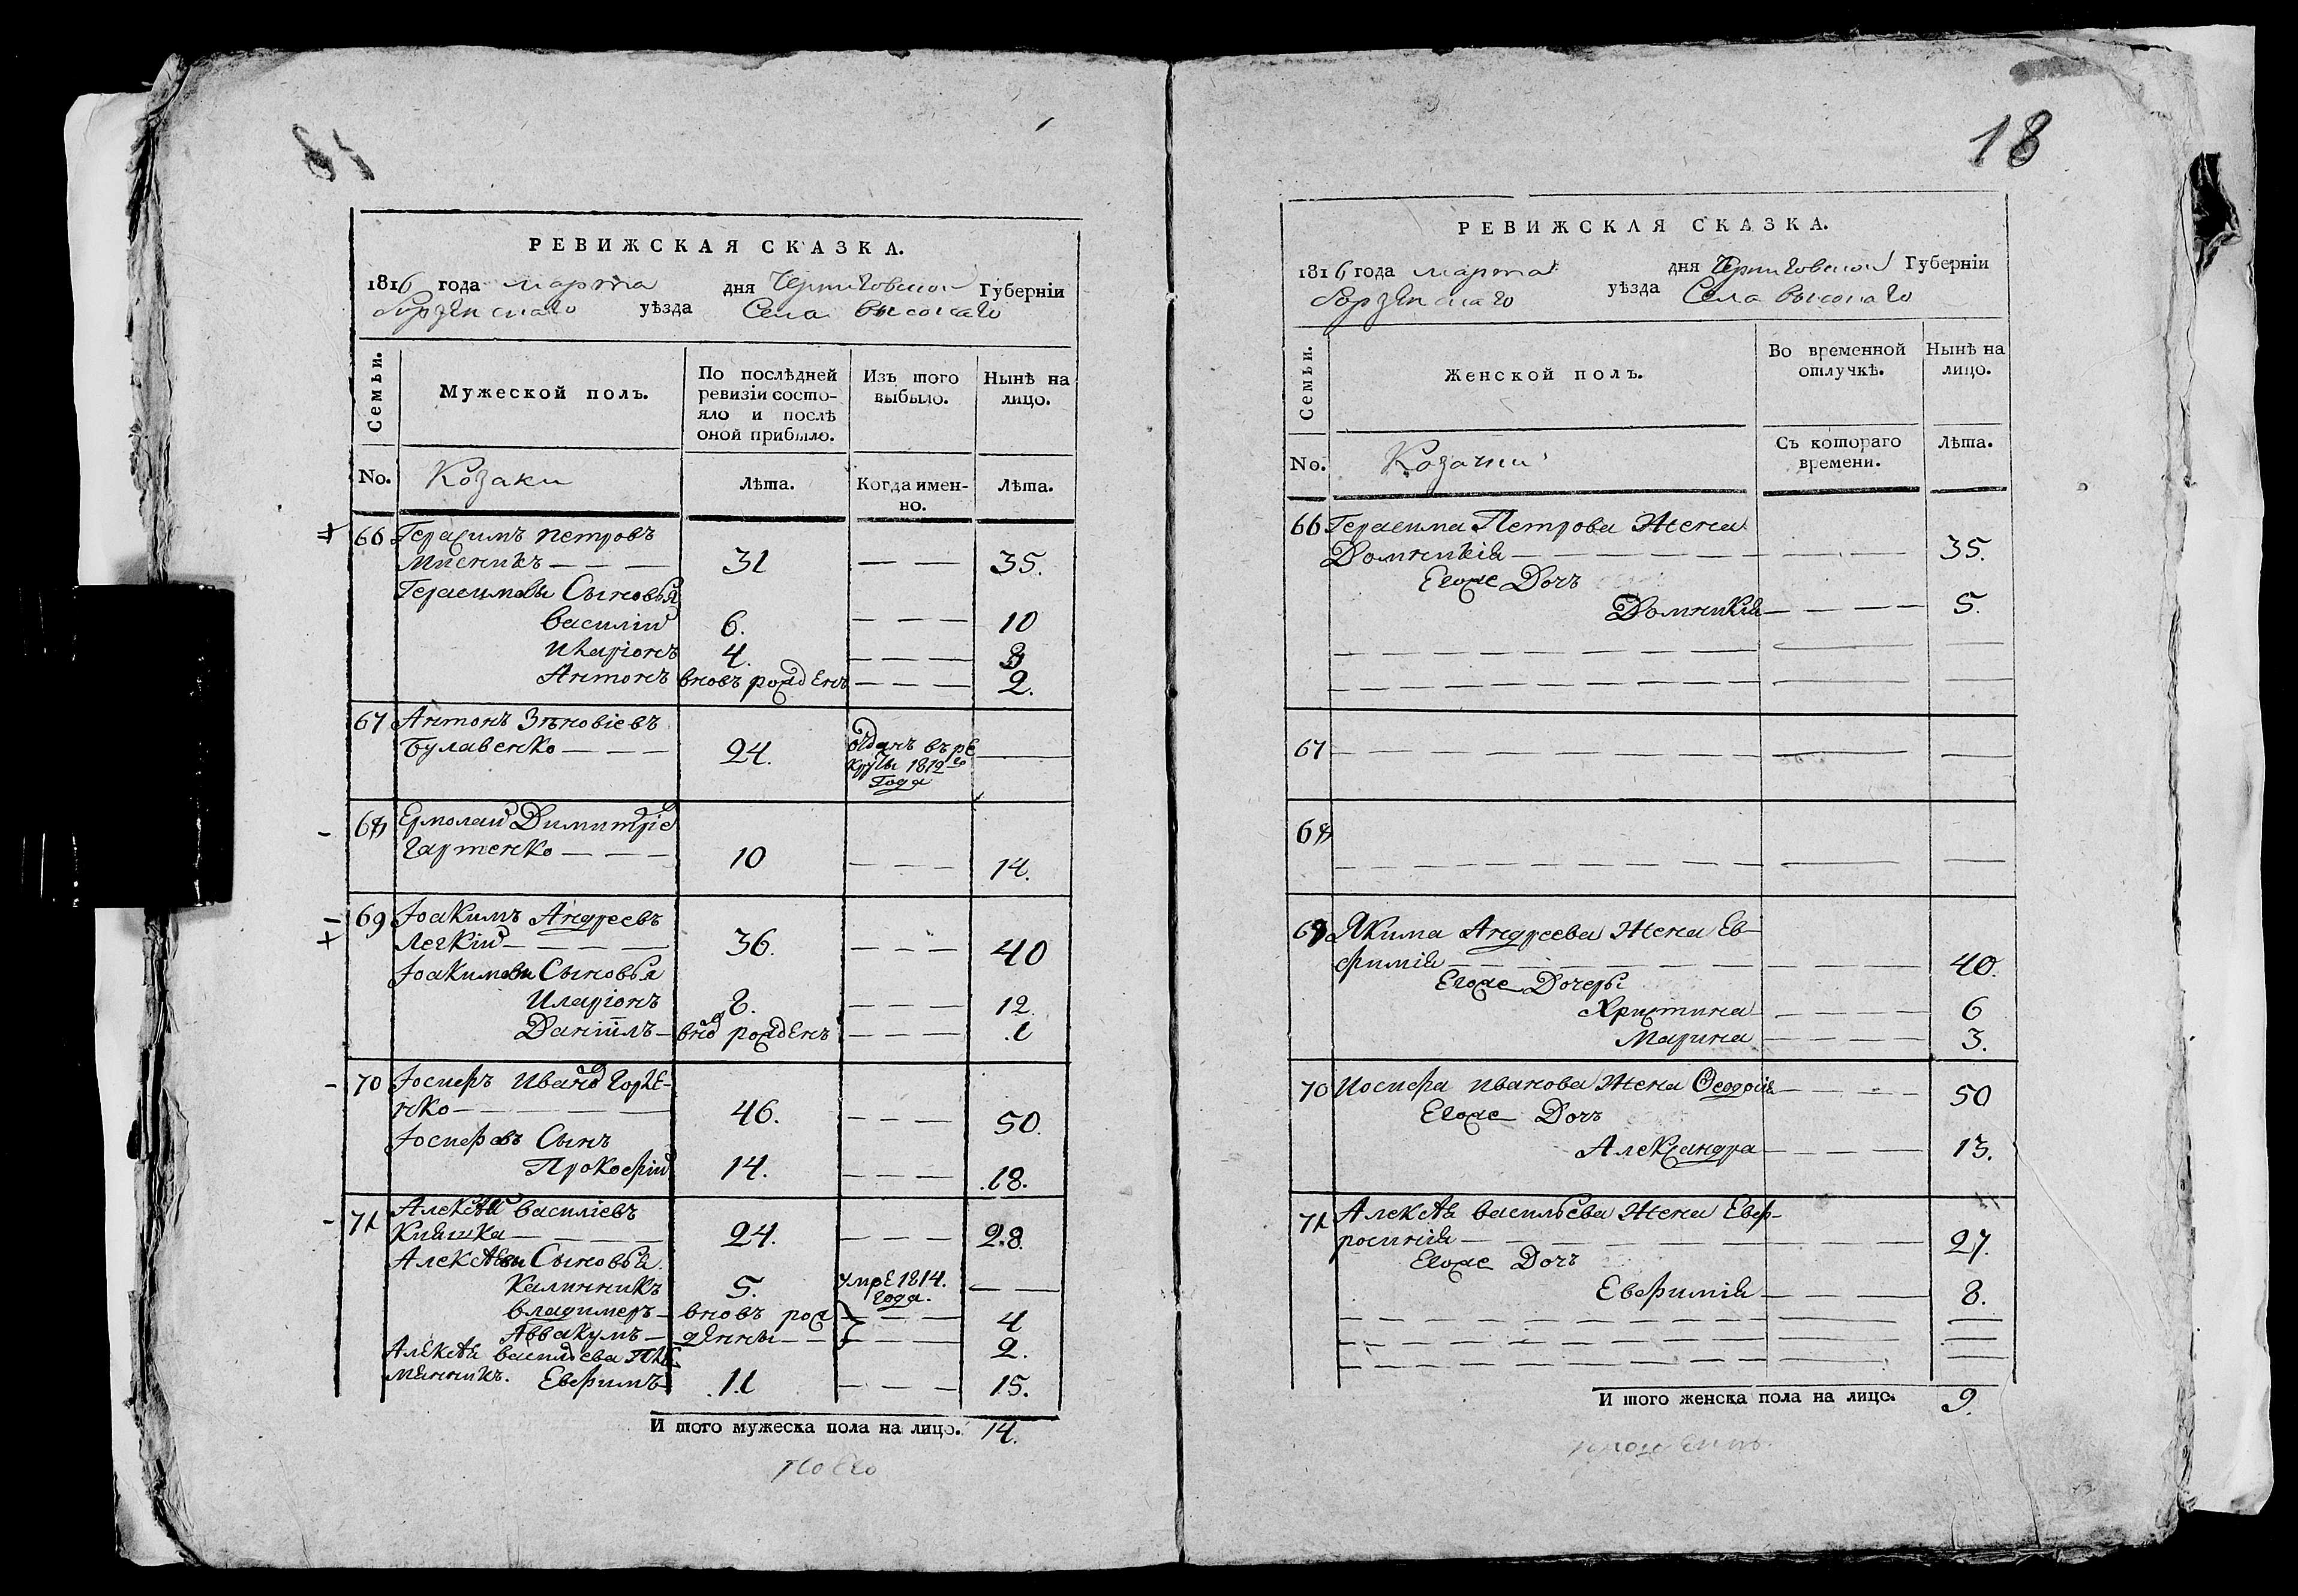 18
РЕВИЖСКАЯ СКАЗКА.
1816 года марта дня Черниговской Губерніи
Борзенскаго уѣзда Села Высокаго
Семьи.
Мужеской полъ.
По послѣдней ревизіи состояло и послѣ оной прибыло.
Изъ того выбыло.
Нынѣ на лицо.
No. Козаки Лѣта. Когда именно. Лѣта.
66 Герасимъ Петровъ
Мисникъ — — — 31 — — 35.
Герасимовы Сыновья
Василій 6. — — — 10
Иларіонъ 4. — — — 8
Антонъ вновь рожденъ — — — 2.
67 Антонъ Зѣновіевъ
Булавенко — — — 24. отданъ въ ре
круты 1812го
года
68 Ермолай Димитріе
Гартенко — — — 10 — — — 14.
69 Іоакимъ Андреевъ
Легкій — — — — 36. — — — 40
Іоакимовы Сыновья
Иларіонъ 8. — — — 12.
Даніилъ — внов рожденъ — — — 1
70 Іосифъ Иванов Горле-
нко — — — — 46. — — — 50.
Іосифовъ Сынъ
Прокофій 14. — — — 18.
71 Алексѣй Василіевъ
Кияшка — — — — 24. — — — 28.
Алексѣевы Сыновья
Калинникъ 5. умре 1814.
года. — —
Владимеръ — вновь рож — — — 4
Аввакумъ — денны — — — — — 2.
Алексѣя Васильева пле
мянникъ. Евфимъ 11 — — — 15.
И того мужеска пола на лицо. 14.
18
РЕВИЖСКАЯ СКАЗКА.
1816 года марта дня Черниговской Губерніи
Борзенскаго уѣзда Села Высокаго
Семьи.
Женской полъ.
Во временной отлучкѣ.
Нынѣ на лицо.
No. Козачки Съ котораго времени. Лѣта.
66 Герасима Петрова Жена
Домникія — — — — 35.
Егоже Дочь
Домникія — — — — 5.
67 — — — —
68 — — — —
69 Якима Андреева Жена Ев-
фимія — — — — 40.
Егоже Дочеры
Христина — — — — 6
Марина — — — — 3.
70 Иосифа Иванова Жена Ѳеодосія — — — 50
Егоже Дочь
Александра — — — — 13.
71 Алексѣя Васильева Жена Евф-
росинія — — — — 27.
Егоже Дочь
Евфимія — — — — 8.
И того женска пола на лицо. 9.